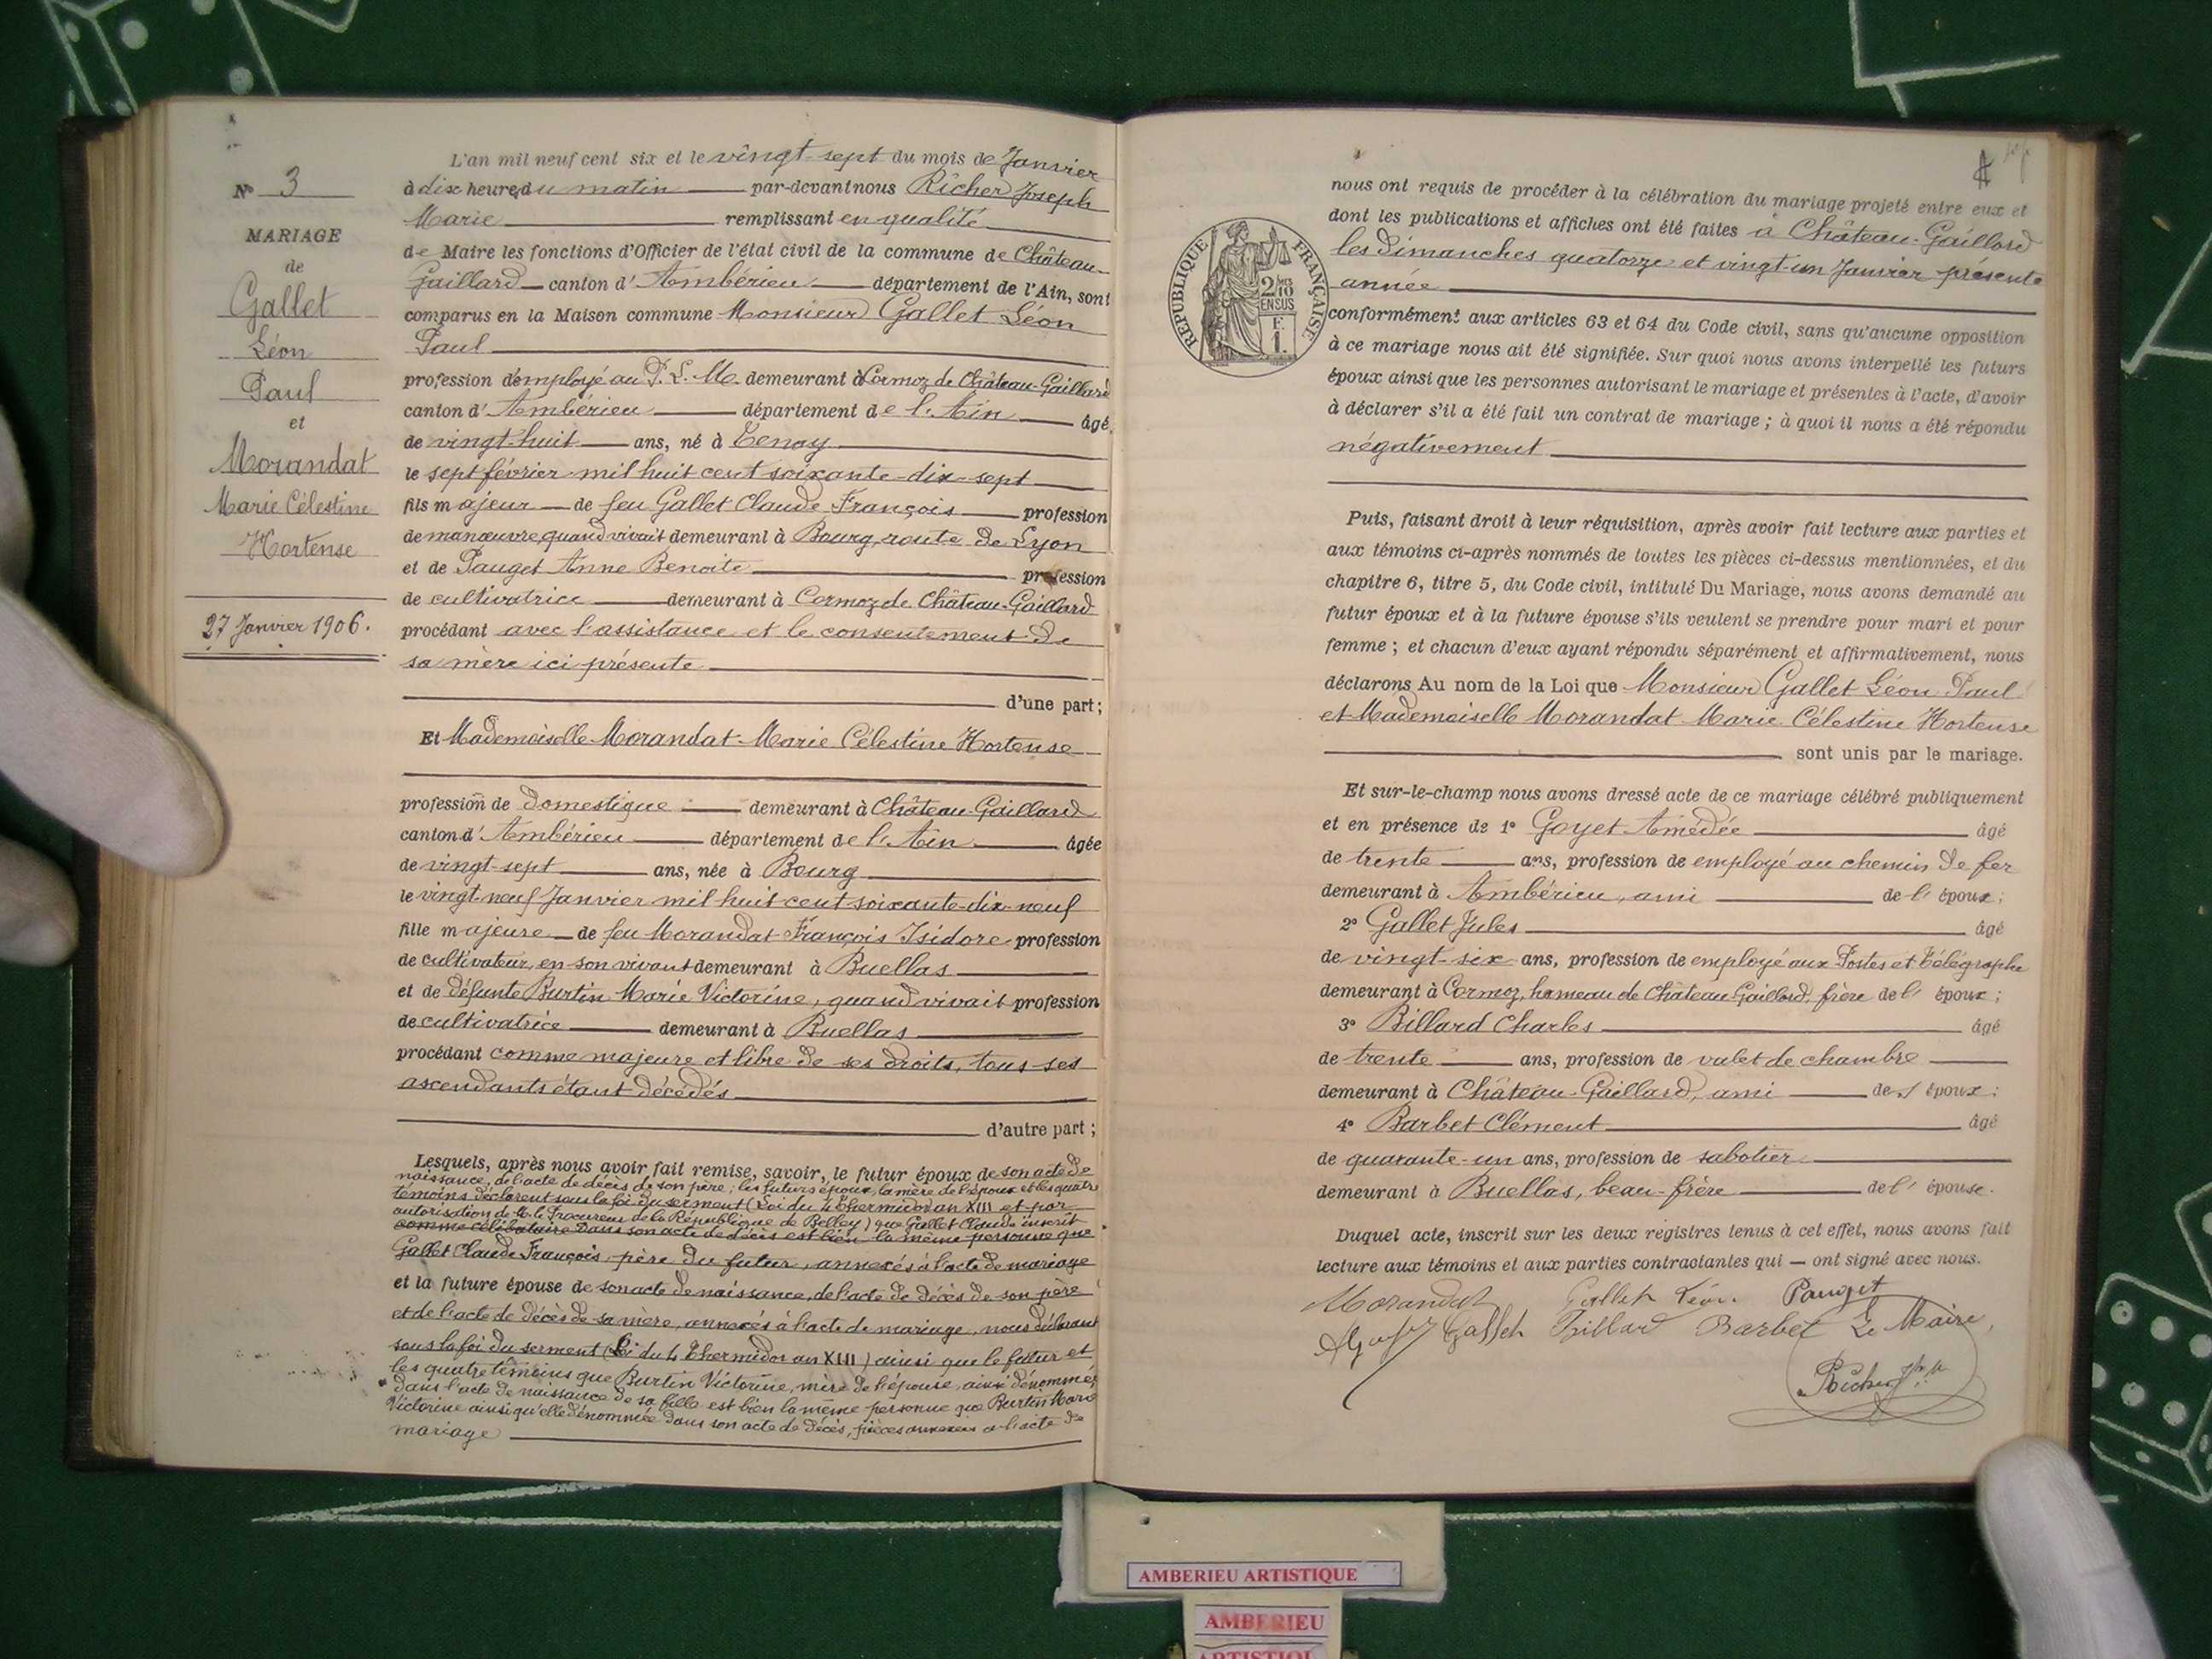 N° 3
MARIAGE
de
Gallet
Léon
Paul
et
Morandat
Marie Célestine
Hortense
27 Janvier 1906.
L'an mil neuf cent six et le vingt-sept du mois de Janvier
à dix heures du matin par-devant nous Richer Joseph
Marie remplissant en qualité
de Maire les fonctions d'Officier de l'état civil de la commune de Château-
Gaillard canton d'Ambérieu département de l'Ain, sont
comparus en la Maison commune Monsieur Gallet Léon
Paul
profession d'employé au P. L. M. demeurant à Cormoz de Château-Gaillard
canton d'Ambérieu département de l'Ain âgé
de vingt-huit ans, né à Tenay
le sept février mil huit cent soixante-dix-sept
fils majeur de feu Gallet Claude François profession
de manœuvre, quand vivait demeurant à Bourg, route de Lyon
et de Pauget Anne Benoite profession
de cultivatrice demeurant à Cormoz de Château-Gaillard
procédant avec l'assistance et le consentement de
sa mère ici présente
d'une part;
Et Mademoiselle Morandat Marie Célestine Hortense
profession de domestique demeurant à Château-Gaillard
canton d'Ambérieu département de l'Ain âgée
de vingt-sept ans, née à Bourg
le vingt-neuf Janvier mil huit cent soixante-dix-neuf
fille majeure de feu Morandat François Isidore profession
de cultivateur, en son vivant demeurant à Buellas
et de défunte Burtin Marie Victorine, quand vivait profession
de cultivatrice demeurant à Buellas
procédant comme majeure et libre de ses droits, tous ses
ascendants étant décédés
d'autre part;
Lesquels, après nous avoir fait remise, savoir, le futur époux de son acte de
naissance, de l'acte de décès de son père; les futurs époux, la mère de l'époux et les quatre
témoins déclarent sous la foi du serment (Loi du 4 Thermidor an XIII et par
autorisation de M. le Procureur de la République de Belley) que Gallet Claude inscrit
comme célibataire dans son acte de décès est bien la même personne que
Gallet Claude François, père du futur, annexés à l'acte de mariage
et la future épouse de son acte de naissance, de l'acte de décès de son père
et de l'acte de décès de sa mère, annexés à l'acte de mariage, nous déclarant
sous la foi du serment (Loi du 4 Thermidor an XIII) ainsi que le futur et
les quatre témoins que Burtin Victorine, mère de l'épouse, ainsi dénommée
dans l'acte de naissance de sa fille est bien la même personne que Burtin Marie
Victorine ainsi qu'elle dénommée dans son acte de décès, pièces annexées à l'acte de
mariage
REPUBLIQUE FRANÇAISE
2/10 EN SUS
F. 1.
nous ont requis de procéder à la célébration du mariage projeté entre eux et
dont les publications et affiches ont été faites à Château-Gaillard
les dimanches quatorze et vingt-un Janvier présente
année
conformément aux articles 63 et 64 du Code civil, sans qu'aucune opposition
à ce mariage nous ait été signifiée. Sur quoi nous avons interpellé les futurs
époux ainsi que les personnes autorisant le mariage et présentes à l'acte, d'avoir
à déclarer s'il a été fait un contrat de mariage; à quoi il nous a été répondu
négativement
Puis, faisant droit à leur réquisition, après avoir fait lecture aux parties et
aux témoins ci-après nommés de toutes les pièces ci-dessus mentionnées, et du
chapitre 6, titre 5, du Code civil, intitulé Du Mariage, nous avons demandé au
futur époux et à la future épouse s'ils veulent se prendre pour mari et pour
femme; et chacun d'eux ayant répondu séparément et affirmativement, nous
déclarons Au nom de la Loi que Monsieur Gallet Léon Paul
et Mademoiselle Morandat Marie Célestine Hortense
sont unis par le mariage.
Et sur-le-champ nous avons dressé acte de ce mariage célébré publiquement
et en présence de 1° Goyet Amédée âgé
de trente ans, profession de employé au chemin de fer
demeurant à Ambérieu, ami de l'époux;
2° Gallet Jules âgé
de vingt-six ans, profession de employé aux Postes et Télégraphe
demeurant à Cormoz, hameau de Château-Gaillard, frère de l'époux;
3° Billard Charles âgé
de trente ans, profession de valet de chambre
demeurant à Château-Gaillard, ami de l'époux;
4° Barbet Clément âgé
de quarante-un ans, profession de sabotier
demeurant à Buellas, beau-frère de l'épouse.
Duquel acte, inscrit sur les deux registres tenus à cet effet, nous avons fait
lecture aux témoins et aux parties contractantes qui — ont signé avec nous.
Morandat Gallet Léon Pauget
Gallet Billard Barbet Le Maire,
Richer
AMBERIEU ARTISTIQUE
AMBERIEU
ARTISTIQUE